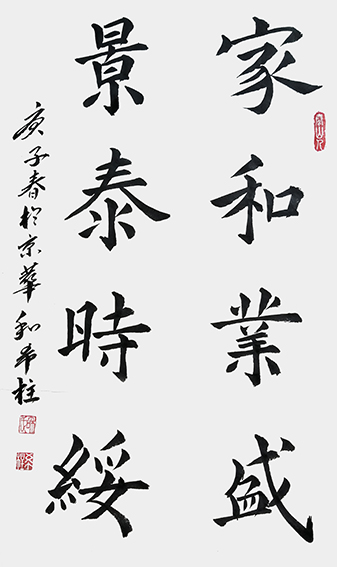 家和業盛
景泰時綏
庚子春於京華和平柱